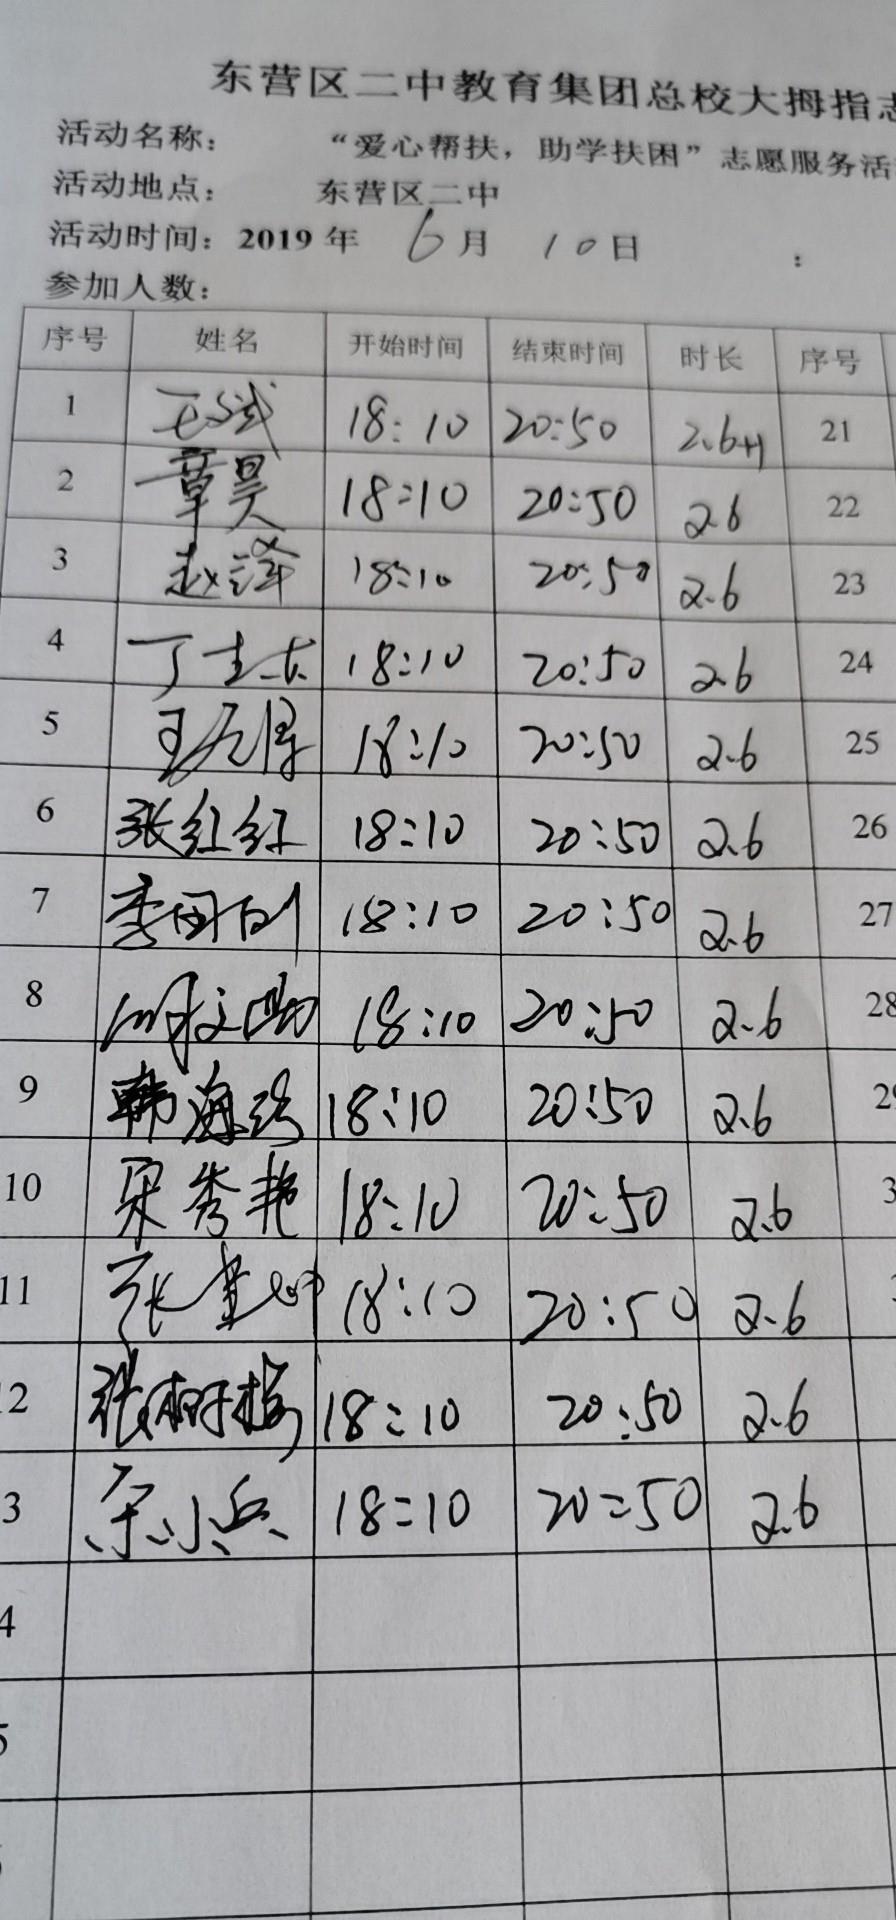 东营区二中教育集团总校大拇指志
活动名称： “爱心帮扶，助学扶困”志愿服务活
活动地点： 东营区二中
活动时间：2019 年 6 月 10 日 ：
参加人数：
序号 姓名 开始时间 结束时间 时长 序号
1 18:10 20:50 2.6 21
2 章昊 18:10 20:50 2.6 22
3 赵泽 18:10 20:50 2.6 23
4 18:10 20:50 2.6 24
5 18:10 20:50 2.6 25
6 张红红 18:10 20:50 2.6 26
7 18:10 20:50 2.6 27
8 18:10 20:50 2.6 28
9 韩海玲 18:10 20:50 2.6
10 宋秀艳 18:10 20:50 2.6
11 18:10 20:50 2.6
2 张树梅 18:10 20:50 2.6
3 小兵 18:10 20:50 2.6
4
5